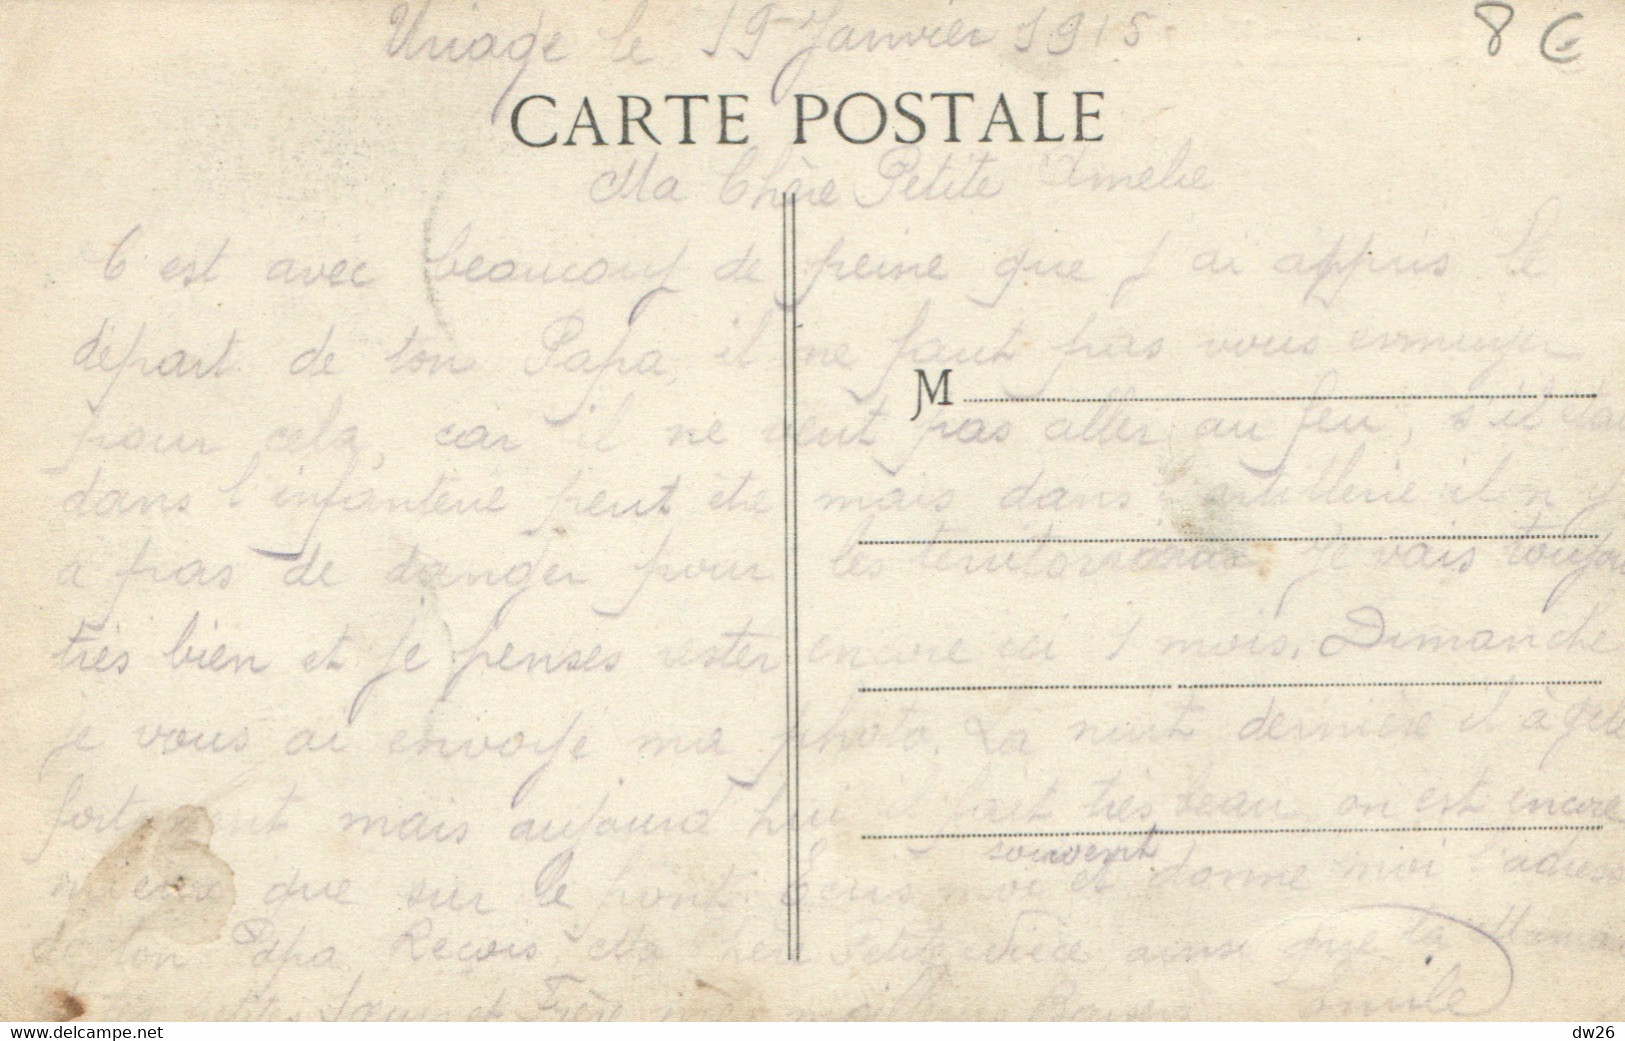 Uriage le 19 Janvier 1915
8 €
CARTE POSTALE
Ma Chère Petite Amelie
C'est avec beaucoup de peine que j'ai appris le
départ de ton Papa, il ne faut pas vous ennuyer
M
pour cela, car il ne veut pas aller au feu, s'il était
dans l'infanterie peut être mais dans l'artillerie il n'y
a pas de danger pour les territoriaux. Je vais toujours
très bien et je penses rester encore ici 1 mois. Dimanche
je vous ai envoyé ma photo. La nuit dernière il à gelé
fortement mais aujourd'hui il fait très beau on est encore
mieux que sur le front. Ecris moi souvent et donne moi l'adresse
de ton Papa. Recois Ma Chère Petite Nièce ainsi que ta Maman
et tes petites Sœurs et Frère mes meilleurs Baisers Emile
dw26